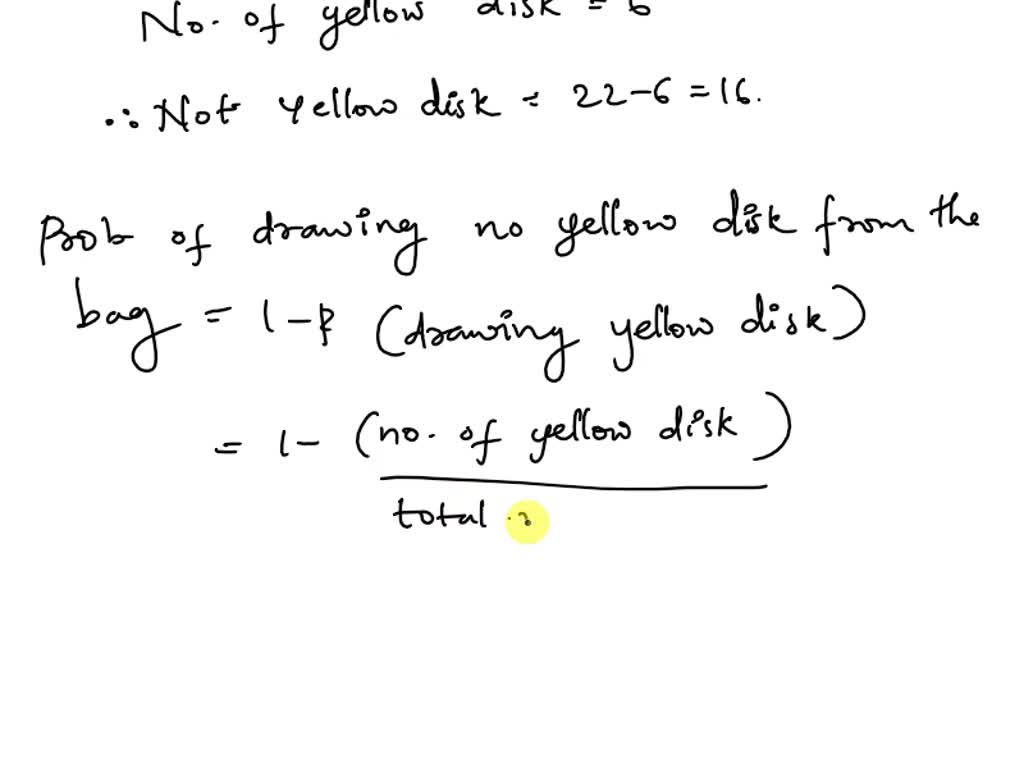 No. of yellow disk = 6
∴ Not Yellow disk = 22-6 = 16.
Prob of drawing no yellow disk from the
bag = 1-P (drawing yellow disk)
= 1- (no. of yellow disk)
total